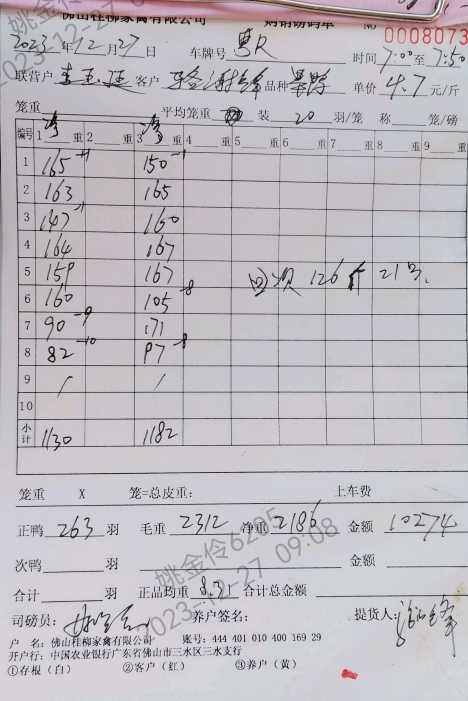 佛山桂柳家禽有限公司 购销磅码单 № 0008073
2023 年 12 月 27 日 车牌号 粤R 时间 7:00 至 7:50
联营户 客户 品种 单价 4.7 元/斤
笼重 平均笼重 装 20 羽/笼 称 笼/磅
编号 1 重 2 重 3 重 4 重 5 重 6 重 7 重 8 重 9
1 165 -1 150 -1
2 163 165
3 147 -1 160
4 164 167
5 159 167 回收 126斤 21只.
6 160 105 -8
7 90 -9 171
8 82 -10 97 -8
9 / /
10
小计 1130 1182
笼重 X 笼=总皮重: 上车费
正鸭 263 羽 毛重 2312 净重 2186 金额 10274
次鸭 羽 金额
合计 羽 正品均重 8.31 合计总金额
司磅员: 养户签名: 提货人:
户 名: 佛山桂柳家禽有限公司 账号: 444 401 010 400 169 29
开户行: 中国农业银行广东省佛山市三水区三水支行
①存根（白） ②客户（红） ③养户（黄）
姚金伶6205
2023-12-27 09:08